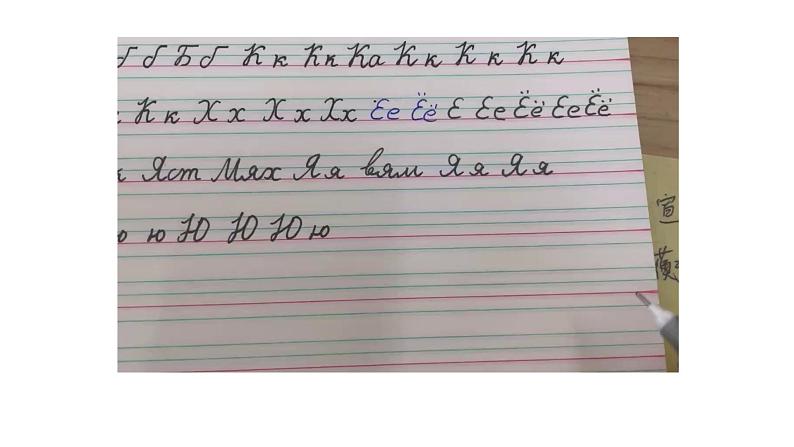 б Б б К к К к К а К к К к К к
К к Х х Х х Х х Ее Ёё Е Ее Ёё Ее Ёё
Яст Мях Я я вям Я я Я я
ю ю Ю Ю Ю ю
宣